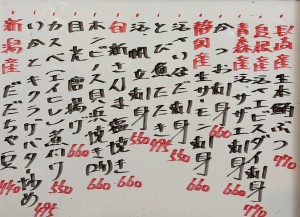 長崎産生本鮪ぶつ 770
島根産活〆エビスダイ刺身 770
青森産 刺身 660
静岡産生サーモン刺身 660
かつお刺身
活〆いなだ刺身 550
とび魚刺身 495
活〆帆立刺身 550
新さんま塩焼き 660
本ビノス貝浜焼き 660
目光唐揚げ 660
カスベエイヒレ煮付け 550
いかとキクラゲバター炒め 660
新潟産だだちゃ豆 440